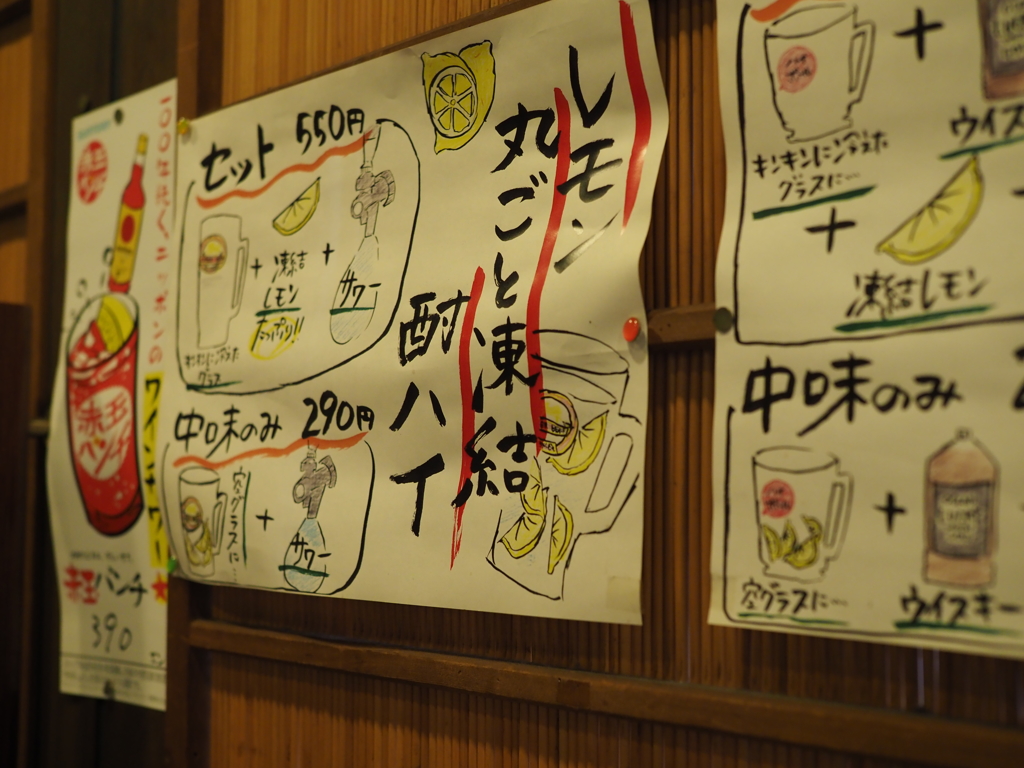 100年続くニッポンの
ワインサワー
赤玉
パンチ
赤玉パンチ
390
レモン
丸ごと凍結
酎ハイ
セット 550円
+
凍結
レモン
たっぷり!!
+
サワー
キンキンに冷えた
グラス
中味のみ 290円
空グラスに…
+
サワー
+
ウイス
キンキンに冷えた
グラスに…
+
凍結レモン
中味のみ
+
空グラスに…
ウイスキー